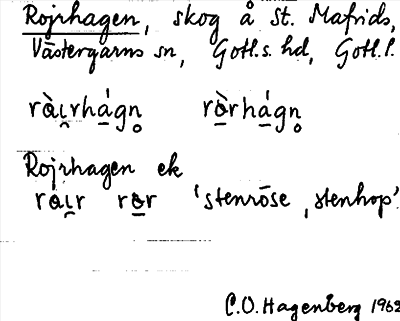 Rojrhagen, skog å St. Mafrids,
Västergarns sn, Gotl.s. hd, Gotl.l.
ràı̯rhá̱gn̥ rò̱rhá̱gn̥
Rojrhagen ek
raı̯r ro̱r 'stenröse, stenhop'
C.O. Hagenberg 1962